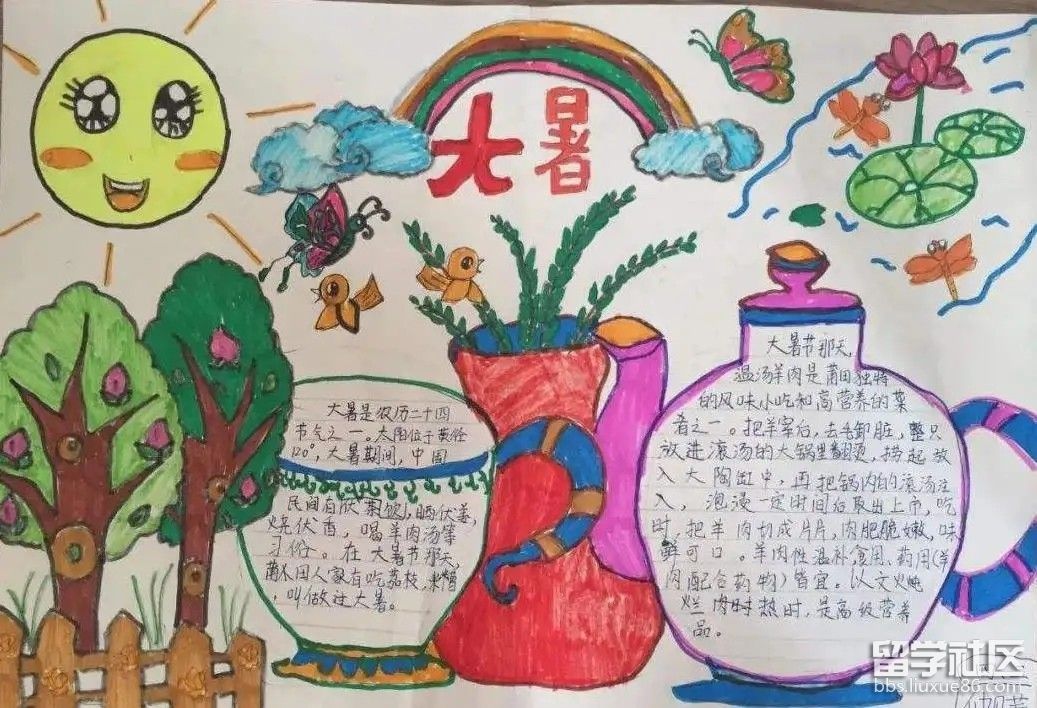 大暑
大暑是农历二十四
节气之一。太阳位于黄经
120°,大暑期间,中国
民间有饮 晒伏姜,
烧伏香,喝羊肉汤等
习俗。在大暑节那天,
人家有吃荔枝,
,叫做过大暑。
大暑节那天,
温汤羊肉是莆田独特
的风味小吃和高营养的菜
肴之一。把羊宰后,去毛卸脏,整只
放进滚汤的大锅里翻烫,捞起放
入大陶缸中,再把锅内的滚汤注
入,泡浸一定时间后取出上市,吃
时,把羊肉切成片片,肉肥脆嫩,味
鲜可口。羊肉性温补,食用、药用(羊
肉配合药物)皆宜。以文火炖
烂肉时热时,是高级营养
品。
留学社区
bbs.liuxue86.com